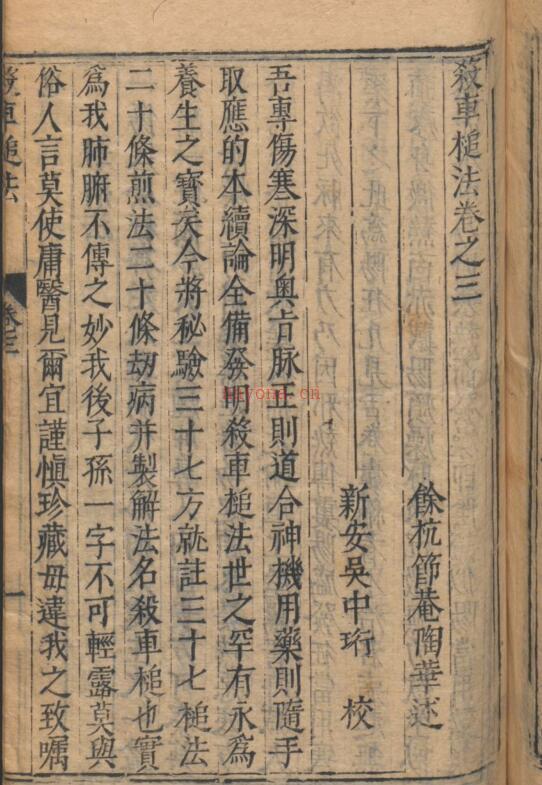 殺車槌法卷之三
餘杭節菴陶華述
新安吳中珩校
吾專傷寒深明奧旨脉正則道合神機用藥則隨手
取應的本續論全備發明殺車槌法世之罕有永為
養生之寳矣今將秘驗三十七方就註三十七槌法
二十條煎法二十條刼病并製解法名殺車槌也實
為我肺腑不傳之妙我後子孫一字不可輕露莫與
俗人言莫使庸醫見爾宜謹愼珍藏毋違我之致囑
殺車槌法 卷三 一